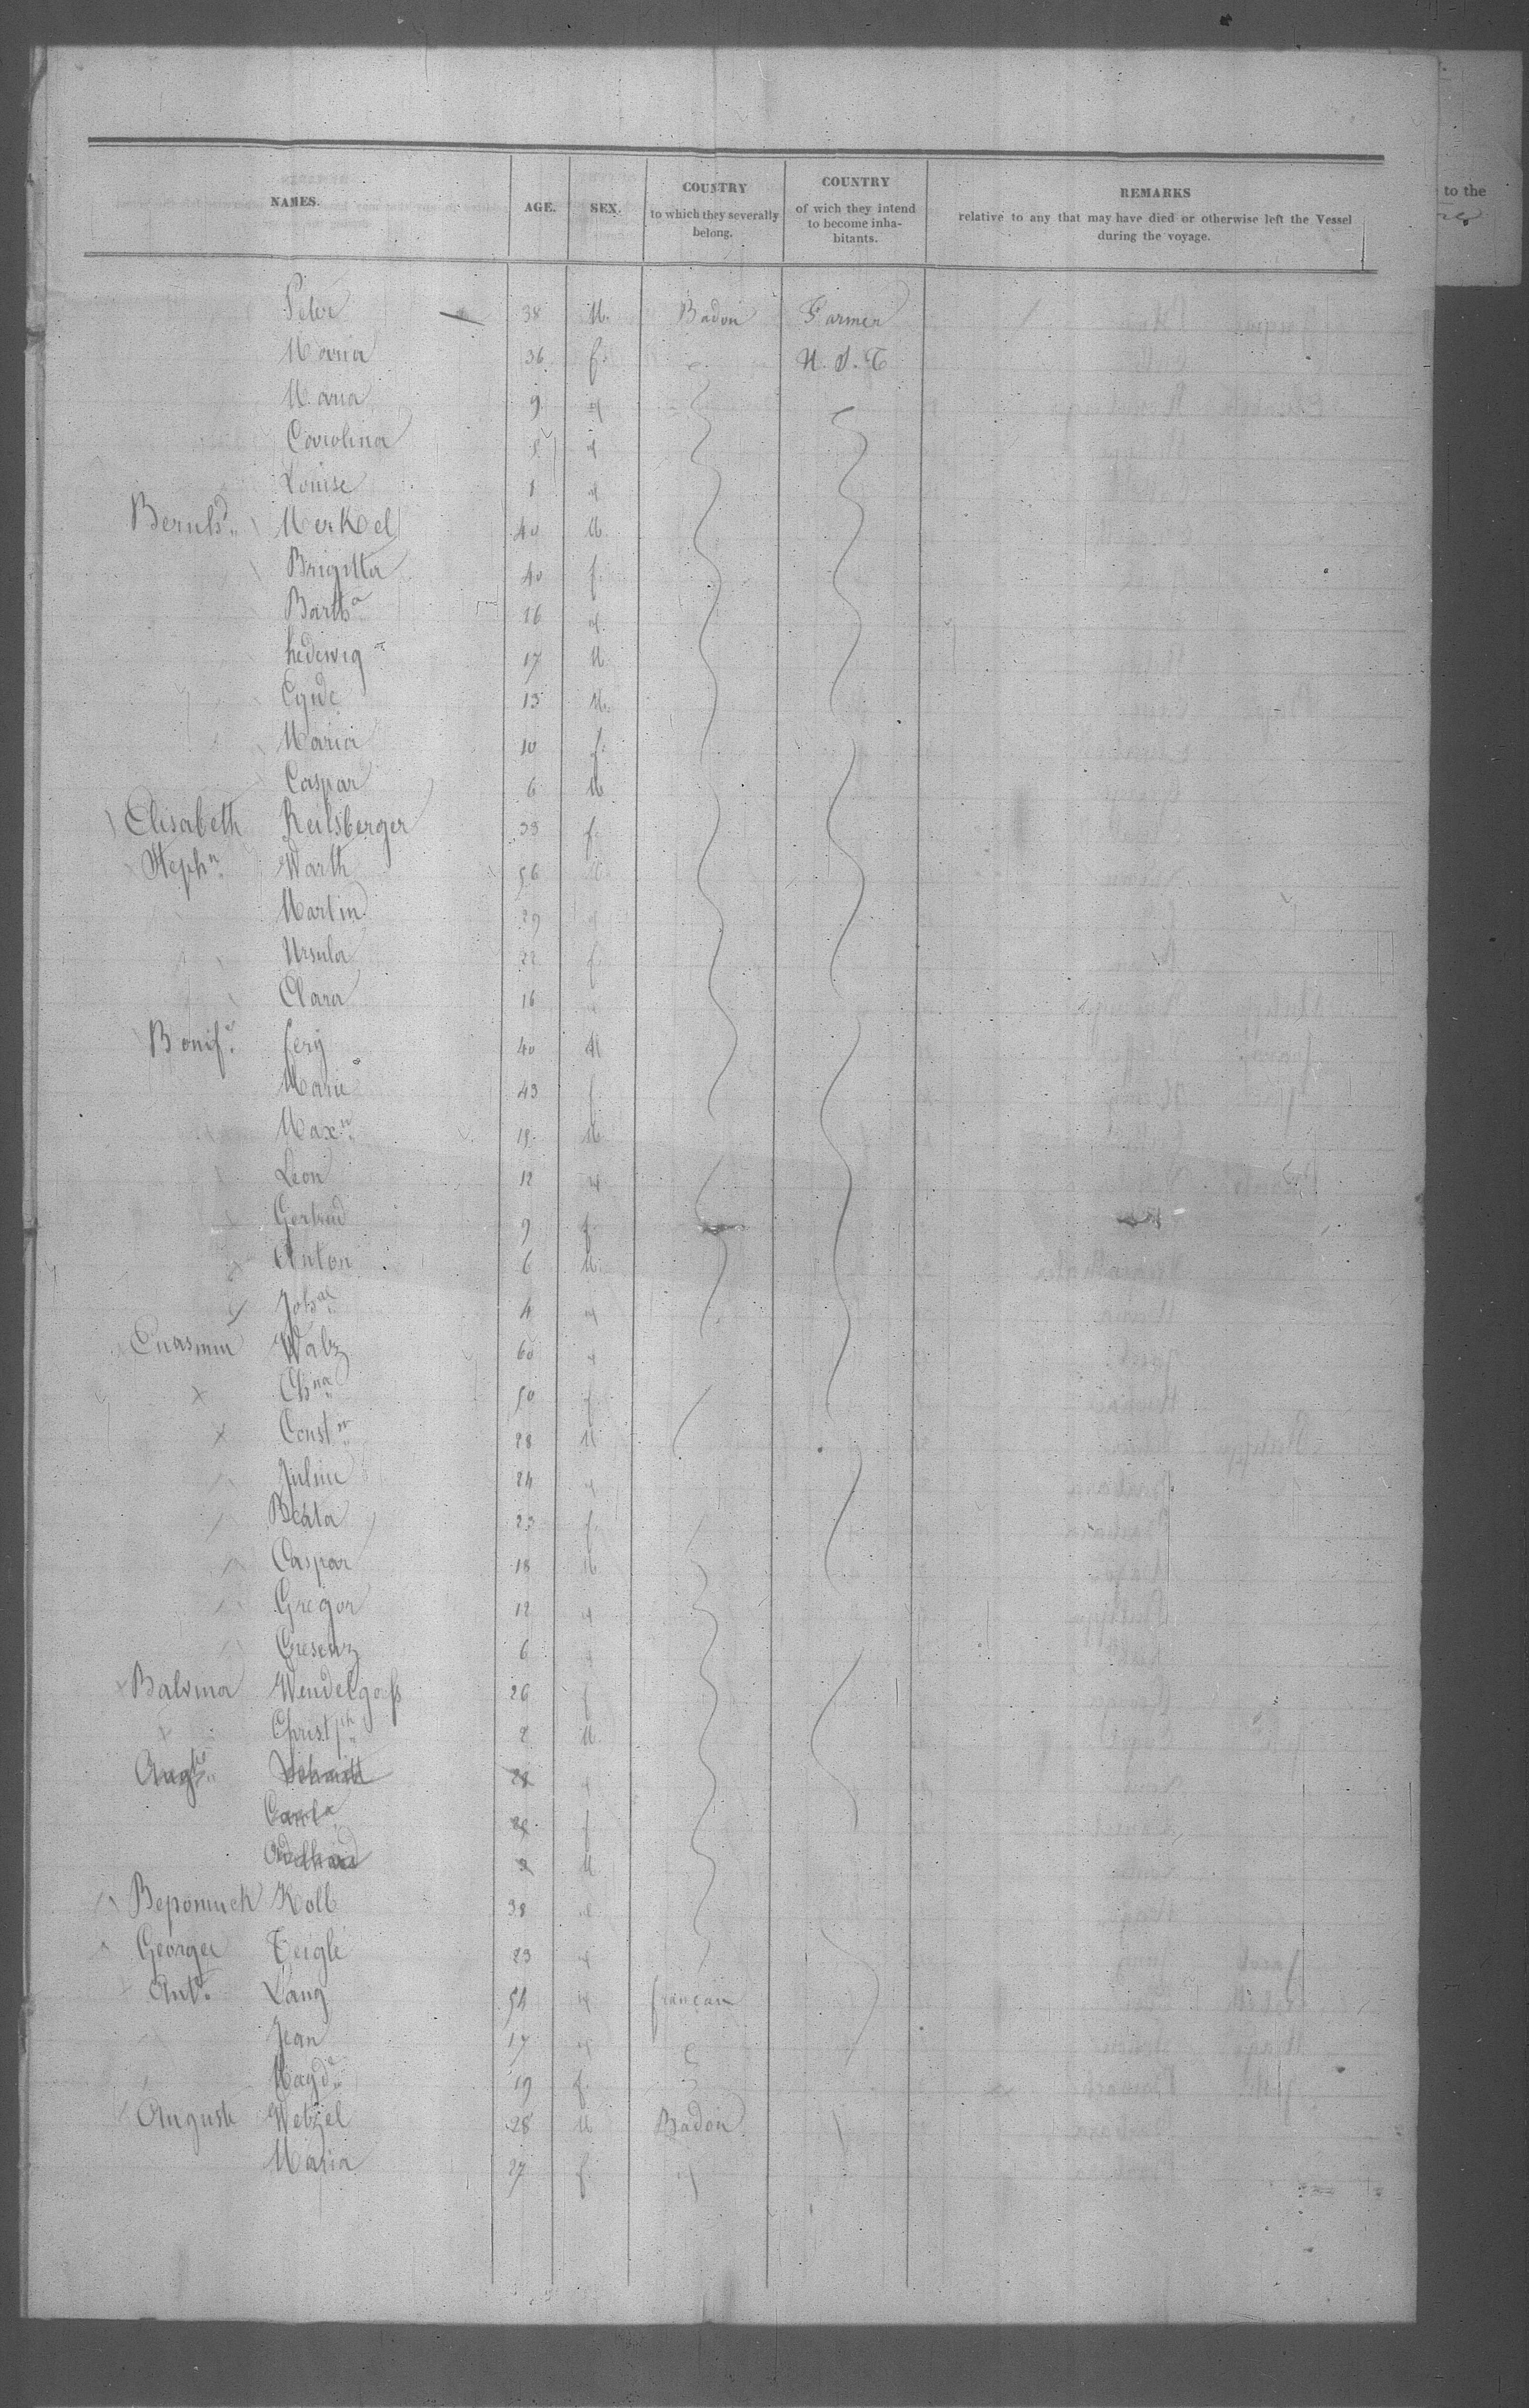 NAMES. AGE. SEX. COUNTRY to which they severally belong. COUNTRY of wich they intend to become inhabitants. REMARKS relative to any that may have died or otherwise left the Vessel during the voyage.
to the
Peter 38 M. Badon Farmer
Maria 36 f. U. S. T
Maria 9 "
Carolina "
Louise 1 "
Bernhd. Merkel 40 M.
Brigitta 40 f.
Barba 16 "
hedewig 17 M.
13 M.
Maria 10 f.
Caspar 6 M
Elisabeth Reilsberger 33 f.
Stephn. Warth 56
Martin 29 "
Ursula 22 f.
Clara 16 "
Bonif. fery 40 M
Marie 43 f
Maxn. 19 M.
Leon 12 "
Gertrud 9 f.
Anton 6 M.
4 "
Walz 60 "
Chna 50 f
Constn 28 M
24 "
Beata 23 f.
Caspar 18 M
Gregor 12 "
Cresenz 6 "
Balvina Wendelgass 26 f
Christph 2 M.
Augte. Schmitt 28 "
Carla f
M
Bepomuck Kolb 38 "
George Teigle 23 "
Ant. Lang 54 " francais
Jean 17 "
Magd. 19 f.
August Wetzel 28 M Badon
Maria 27 f. "